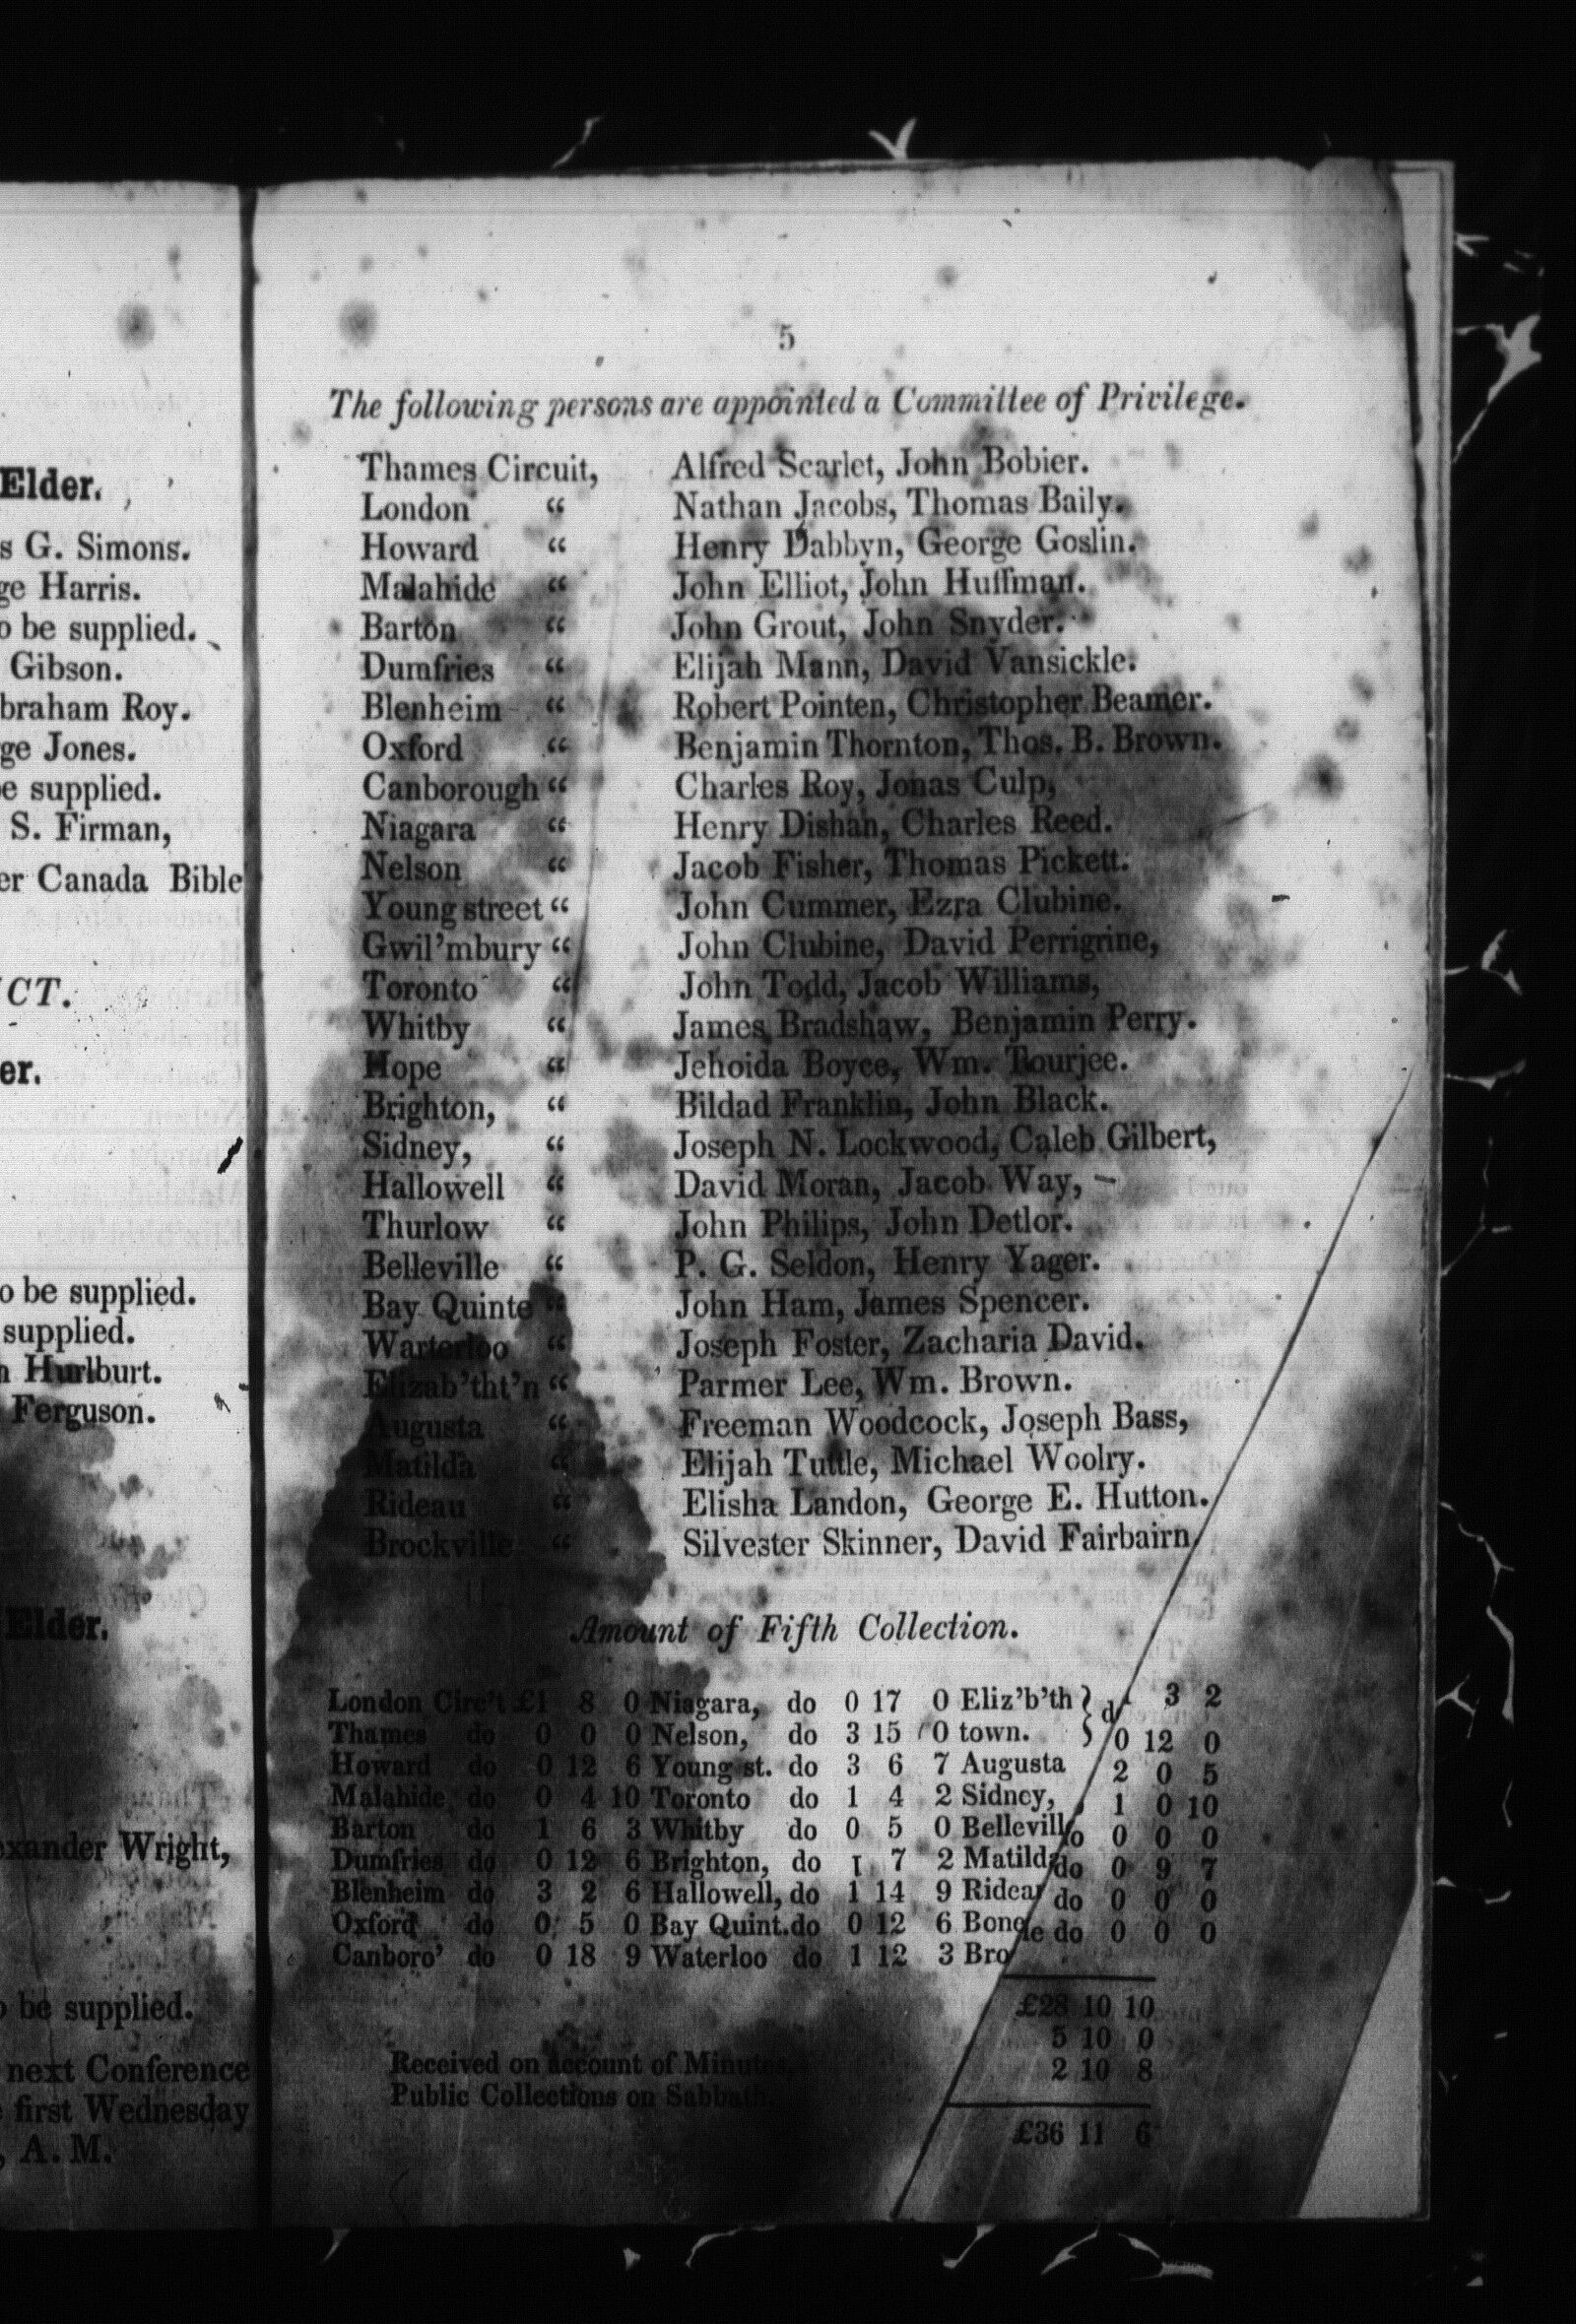 Elder.
s G. Simons.
ge Harris.
o be supplied.
Gibson.
braham Roy.
ge Jones.
e supplied.
S. Firman,
er Canada Bible
CT.
er.
o be supplied.
supplied.
n Hurlburt.
Ferguson.
Elder.
exander Wright,
o be supplied.
next Conference
e first Wednesday
, A. M.
5
The following persons are appointed a Committee of Privilege.
Thames Circuit, Alfred Scarlet, John Bobier.
London “ Nathan Jacobs, Thomas Baily.
Howard “ Henry Dabbyn, George Goslin.
Malahide “ John Elliot, John Huffman.
Barton “ John Grout, John Snyder.
Dumfries “ Elijah Mann, David Vansickle.
Blenheim “ Robert Pointen, Christopher Beamer.
Oxford “ Benjamin Thornton, Thos. B. Brown.
Canborough “ Charles Roy, Jonas Culp,
Niagara “ Henry Dishan, Charles Reed.
Nelson “ Jacob Fisher, Thomas Pickett.
Young street “ John Cummer, Ezra Clubine.
Gwil’mbury “ John Clubine, David Perrigrine,
Toronto “ John Todd, Jacob Williams,
Whitby “ James Bradshaw, Benjamin Perry.
Hope “ Jehoida Boyce, Wm. Tourjee.
Brighton, “ Bildad Franklin, John Black.
Sidney, “ Joseph N. Lockwood, Caleb Gilbert,
Hallowell “ David Moran, Jacob Way,
Thurlow “ John Philips, John Detlor.
Belleville “ P. G. Seldon, Henry Yager.
Bay Quinte “ John Ham, James Spencer.
Warterloo “ Joseph Foster, Zacharia David.
Elizab’tht’n “ Parmer Lee, Wm. Brown.
Augusta “ Freeman Woodcock, Joseph Bass,
Matilda “ Elijah Tuttle, Michael Woolry.
Rideau “ Elisha Landon, George E. Hutton.
Brockville “ Silvester Skinner, David Fairbairn,
Amount of Fifth Collection.
London Circ’t £1 8 0 Niagara, do 0 17 0 Eliz’b’th } d 1 3 2
Thames do 0 0 0 Nelson, do 3 15 0 town. } 0 12 0
Howard do 0 12 6 Young st. do 3 6 7 Augusta 2 0 5
Malahide do 0 4 10 Toronto do 1 4 2 Sidney, 1 0 10
Barton do 1 6 3 Whitby do 0 5 0 Bellevill do 0 0 0
Dumfries do 0 12 6 Brighton, do 1 7 2 Matilda do 0 9 7
Blenheim do 3 2 6 Hallowell, do 1 14 9 Ridea do 0 0 0
Oxford do 0 5 0 Bay Quint. do 0 12 6 Bone le do 0 0 0
Canboro’ do 0 18 9 Waterloo do 1 12 3 Bro
£28 10 10
5 10 0
Received on account of Minutes, 2 10 8
Public Collections on Sabbath.
£36 11 6